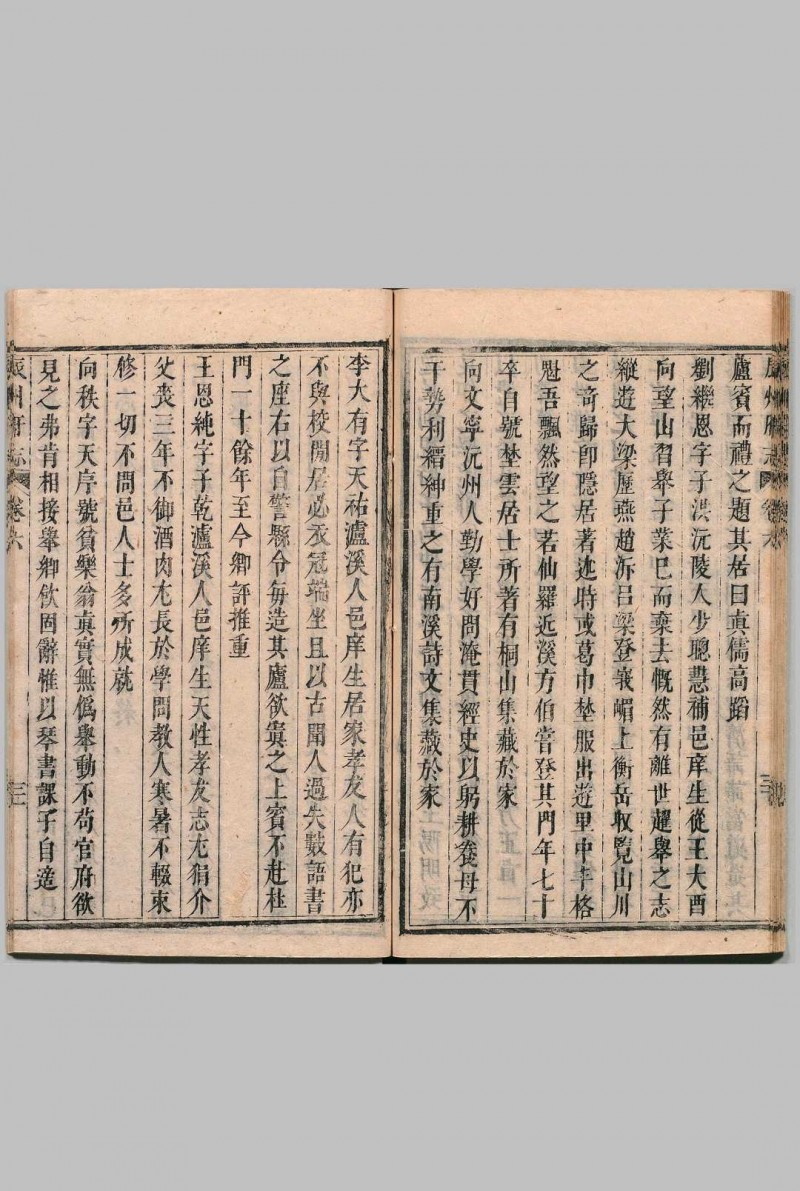 廬賓而禮之題其居曰真儒高蹈
劉繼恩字子洪沅陵人少聰慧補邑庠生從王大酉
向望山習舉子業巳而棄去慨然有離世超舉之志
縱遊大梁歷燕趙泝呂梁登峩嵋上衡岳収覽山川
之奇歸卽隱居著述時或葛巾埜服出遊里中丰格
魁吾飄然望之若仙羅近溪方伯嘗登其門年七十
卒自號埜雲居士所著有桐山集藏於家
向文寧沅州人勤學好問淹貫經史以躬耕養母不
干勢利縉紳重之有南溪詩文集藏於家
李大有字天祐瀘溪人邑庠生居家孝友人有犯亦
不與校閒居必衣冠端坐且以古聞人過失數語書
之座右以自警縣令每造其廬欲寘之上賓不赴杜
門一十餘年至今鄉評推重
王恩純字子乾瀘溪人邑庠生天性孝友志尤狷介
父喪三年不御酒肉尤長於學問教人寒暑不輟束
修一切不問邑人士多所成就
向秩字天序號貧樂翁真實無僞舉動不苟官府欲
見之弗肯相接舉鄉飲固辭惟以琴書課子自適
辰州府志 卷六 三